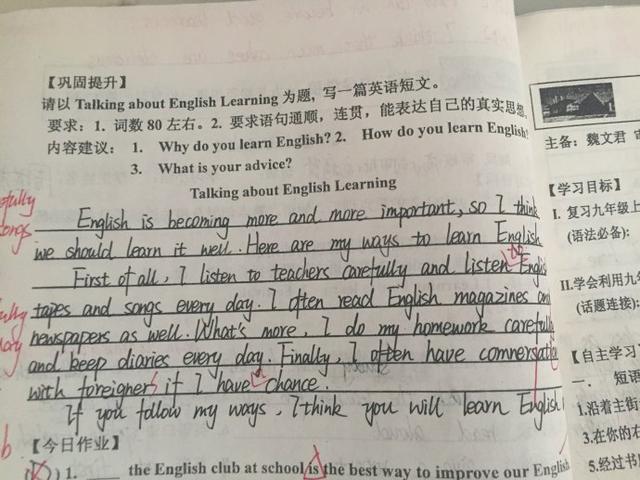 【巩固提升】
请以 Talking about English Learning 为题, 写一篇英语短文。
要求: 1. 词数 80 左右。2. 要求语句通顺, 连贯, 能表达自己的真实思想
内容建议: 1. Why do you learn English? 2. How do you learn English
3. What is your advice?
Talking about English Learning
English is becoming more and more important, so I think
we should learn it well. Here are my ways to learn English
First of all, I listen to teachers carefully and listen to Englis
tapes and songs every day. I often read English magazines an
newspapers as well. What's more, I do my homework carefully
and keep diaries every day. Finally, I often have conversatio
with foreigners if I have a chance.
If you follow my ways, I think you will learn English
【今日作业】
1. ___ the English club at school is the best way to improve our Englis
efully
songs
b
主备: 魏文君
【学习目标】
I. 复习九年级上
(语法必备):
II.学会利用九年
(话题连接):
【自主学习
一. 短语
1.沿着主街
3.在你的右
5.经过书